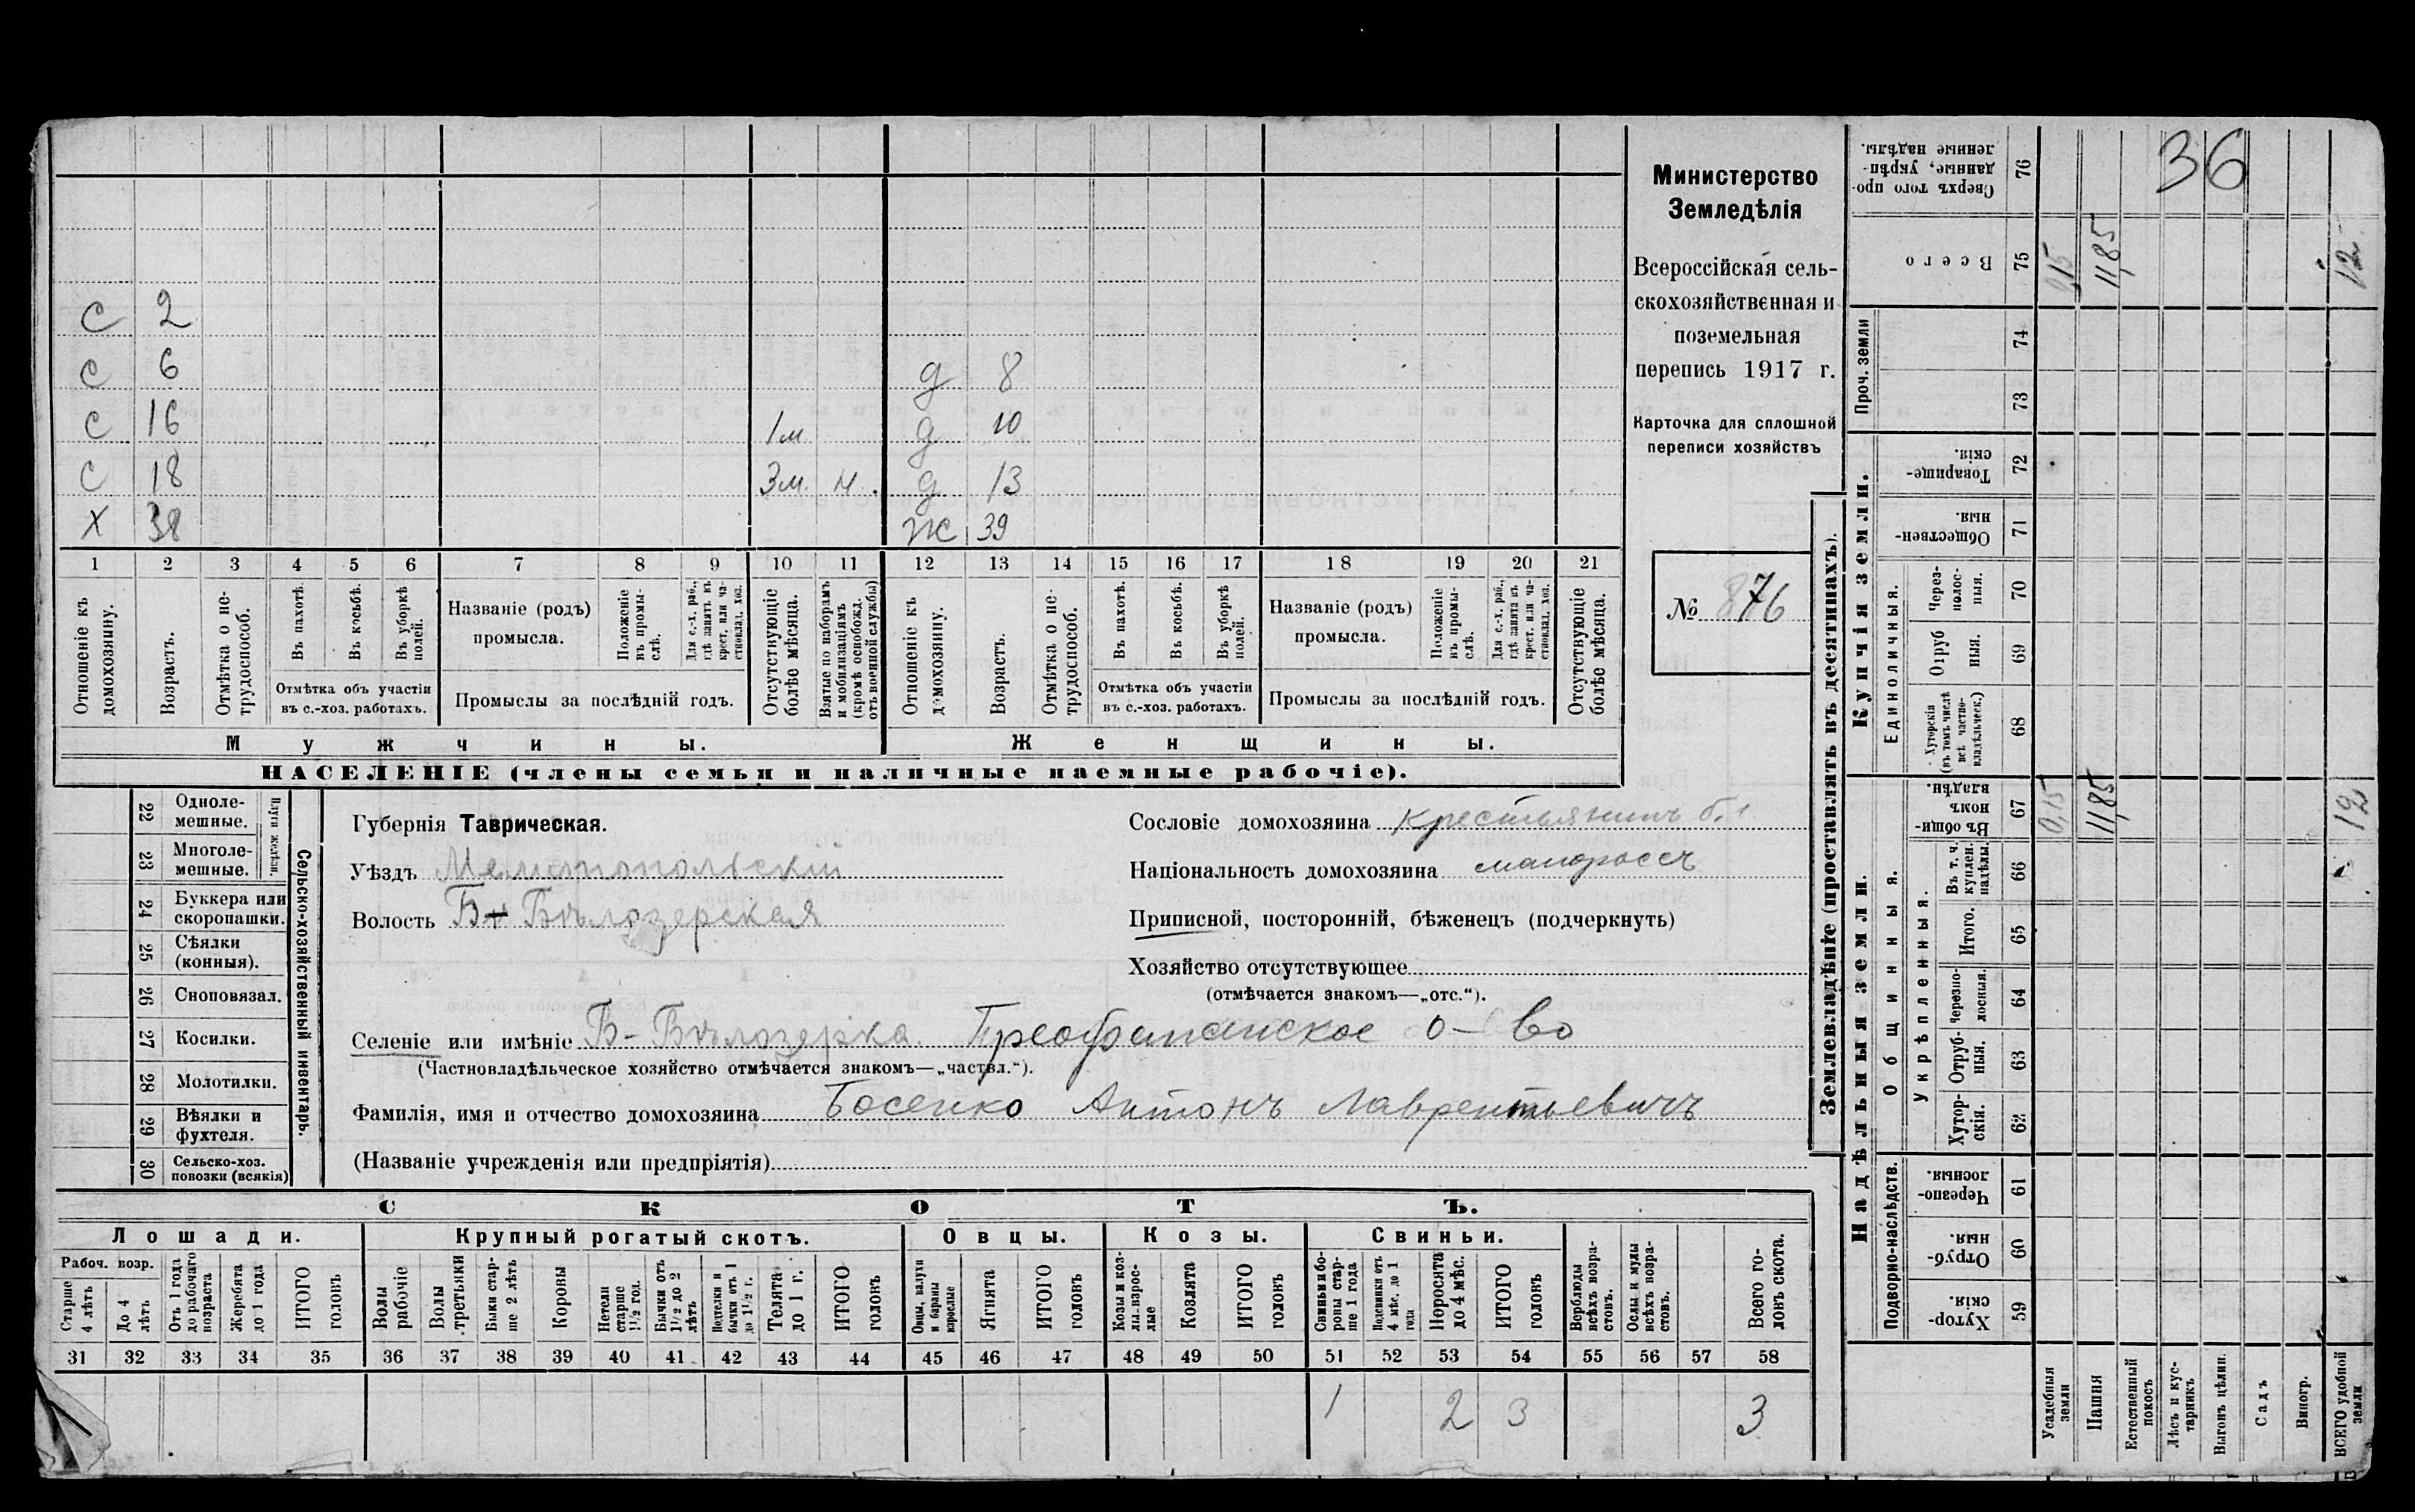 36
Министерство
Земледѣлія
Всероссійская сель-
скохозяйственная и
поземельная
перепись 1917 г.
Карточка для сплошной
переписи хозяйствъ
№ 876
С 2
С 6 д 8
С 16 1м д 10
С 18 3м. н. д 13
Х 38 ж 39
1 2 3 4 5 6 7 8 9 10 11 12 13 14 15 16 17 18 19 20 21
Отношеніе къ домохозяину.
Возрастъ.
Отмѣтка о не-трудоспособ.
Въ пахотѣ.
Въ косьбѣ.
Въ уборкѣ полей.
Отмѣтка объ участіи
въ с.-хоз. работахъ.
Названіе (родъ)
промысла.
Положеніе въ промы-слѣ.
Для с.-х. раб., гдѣ занятъ въ крест. или ча-стновлад. хоз.
Промыслы за послѣдній годъ.
Отсутствующіе болѣе мѣсяца.
Взятые по наборамъ и мобилизаціямъ (кромѣ освобожд. отъ военной службы)
Отношеніе къ домохозяину.
Возрастъ.
Отмѣтка о не-трудоспособ.
Въ пахотѣ.
Въ косьбѣ.
Въ уборкѣ полей.
Отмѣтка объ участіи
въ с.-хоз. работахъ.
Названіе (родъ)
промысла.
Положеніе въ промы-слѣ.
Для с.-х. раб., гдѣ занята въ крест. или ча-стновлад. хоз.
Промыслы за послѣдній годъ.
Отсутствующіе болѣе мѣсяца.
Мужчины. Женщины.
НАСЕЛЕНІЕ (члены семьи и наличные наемные рабочіе).
22 Одноле-мешные.
23 Многоле-мешные.
Плуги желѣзн.
24 Буккера или скоропашки.
25 Сѣялки (конныя).
26 Сноповязал.
27 Косилки.
28 Молотилки.
29 Вѣялки и фухтеля.
30 Сельско-хоз. повозки (всякія)
Сельско-хозяйственный инвентарь.
Губернія Таврическая.
Уѣздъ Мелитопольскій
Волость Б- Бѣлозерская
Сословіе домохозяина крестьянинъ б.
Національность домохозяина малороссъ
Приписной, посторонній, бѣженецъ (подчеркнуть)
Хозяйство отсутствующее
(отмѣчается знакомъ—„отс.“).
Селеніе или имѣніе Б-Бѣлозерка. Преображенское о-во
(Частновладѣльческое хозяйство отмѣчается знакомъ—„частвл.“).
Фамилія, имя и отчество домохозяина Босенко Антонъ Лаврентьевичъ
(Названіе учрежденія или предпріятія)
СКОТЪ.
Лошади. Крупный рогатый скотъ. Овцы. Козы. Свиньи.
Рабоч. возр.
Старше 4 лѣтъ
До 4 лѣтъ
Отъ 1 года до рабочаго возраста
Жеребята до 1 года
ИТОГО головъ
Волы рабочіе
Волы третьяки
Быки стар-ше 2 лѣтъ
Коровы
Нетели старше 1½ год.
Бычки отъ 1½ до 2 лѣтъ
Подтелки и бычки отъ 1 до 1½ г.
Телята до 1 г.
ИТОГО головъ
Овцы, валухи и бараны взрослые
Ягнята
ИТОГО головъ
Козы и коз-лы взрос-лые
Козлята
ИТОГО головъ
Свиньи и бо-ровы стар-ше 1 года
Подсвинки отъ 4 мѣс. до 1 года
Поросята до 4 мѣс.
ИТОГО головъ
Верблюды всѣхъ возра-стовъ.
Ослы и мулы всѣхъ возра-стовъ.
Всего го-ловъ скота.
31 32 33 34 35 36 37 38 39 40 41 42 43 44 45 46 47 48 49 50 51 52 53 54 55 56 57 58
1 2 3 3
Землевладѣніе (проставлять въ десятинахъ).
Надѣльныя земли. Купчія земли. Проч. земли
Подворно-наслѣдств.
Общинныя.
Укрѣпленныя.
Единоличныя.
Сверхъ того про-данные, укрѣп-ленные надѣлы. 76
Всего 75 0,15 11,85 12
74
73
Товарище-скія. 72
Обществен-ныя. 71
Через-полос-ныя. 70
Отруб ныя. 69
Хуторскія (въ томъ числѣ всѣ частно-владѣльческ.) 68
Въ общин-номъ владѣн. 67 0,15 11,85 12
Въ т. ч. куплен. надѣлы. 66
Итого. 65
Черезпо-лосныя. 64
Отруб-ныя. 63
Хутор-скія. 62
Черезпо-лосныя. 61
Отруб-ныя. 60
Хутор-скія. 59
Усадебныя земли
Пашня
Естественный покосъ
Лѣсъ и кус-тарникъ
Выгонъ цѣлин.
Садъ
Виногр.
ВСЕГО удобной земли